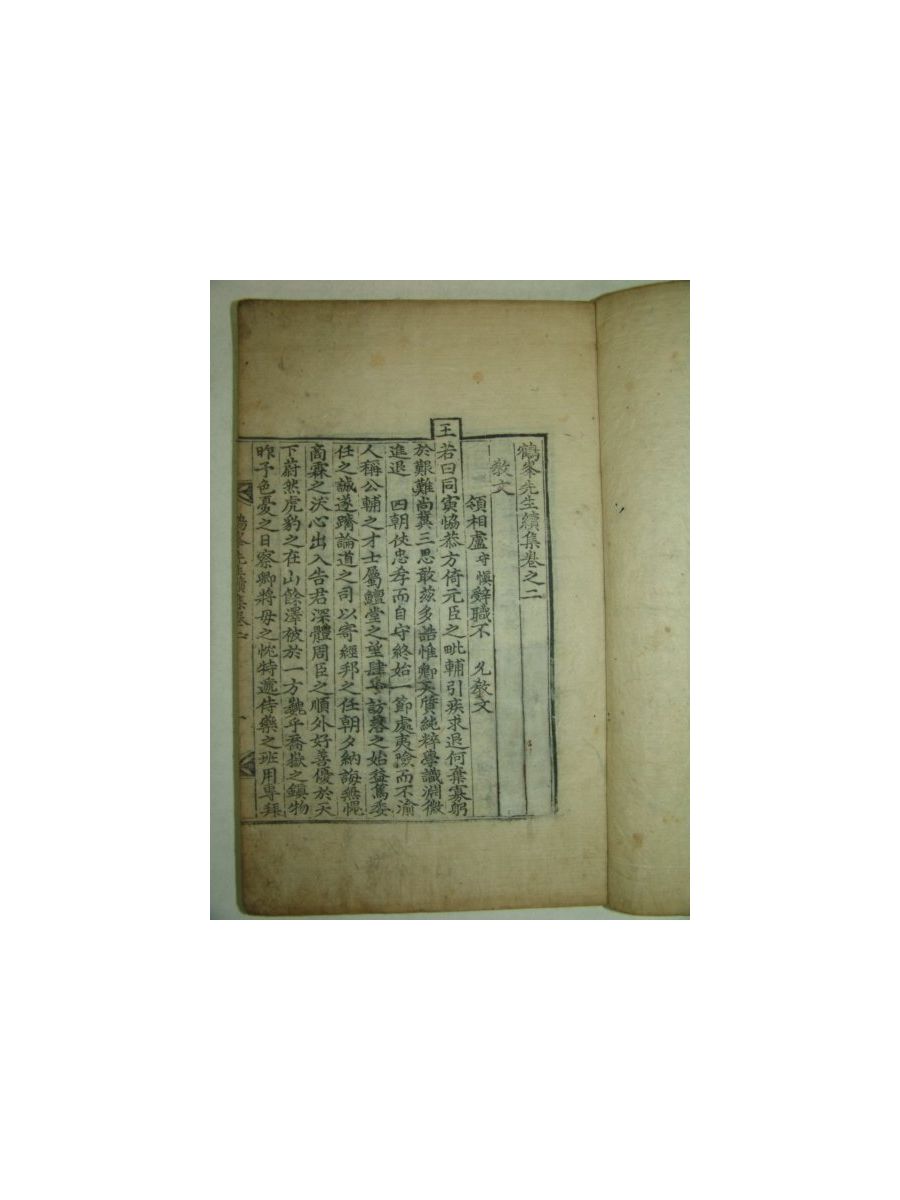 鶴峯先生續集卷之二
教文
領相盧守愼辭職不 允教文
王若曰同寅恊恭方倚元臣之毗輔引疾求退何棄寡躬
於艱難尚冀三思敢玆多誥惟卿天質純粹學識淵微
進退 四朝伏忠孝而自守終始一節處夷險而不渝
人稱公輔之才士屬鱣堂之望肆予訪落之始益篤委
任之誠遂躋論道之司以寄經邦之任朝夕納誨無愧
商霖之沃心出入告君深體周臣之順外好善優於天
下蔚然虎豹之在山餘澤彼於一方巍乎喬嶽之鎮物
昨予色憂之日察卿將母之忱特遞侍藥之班用卑拜
鶴峯先生續集卷